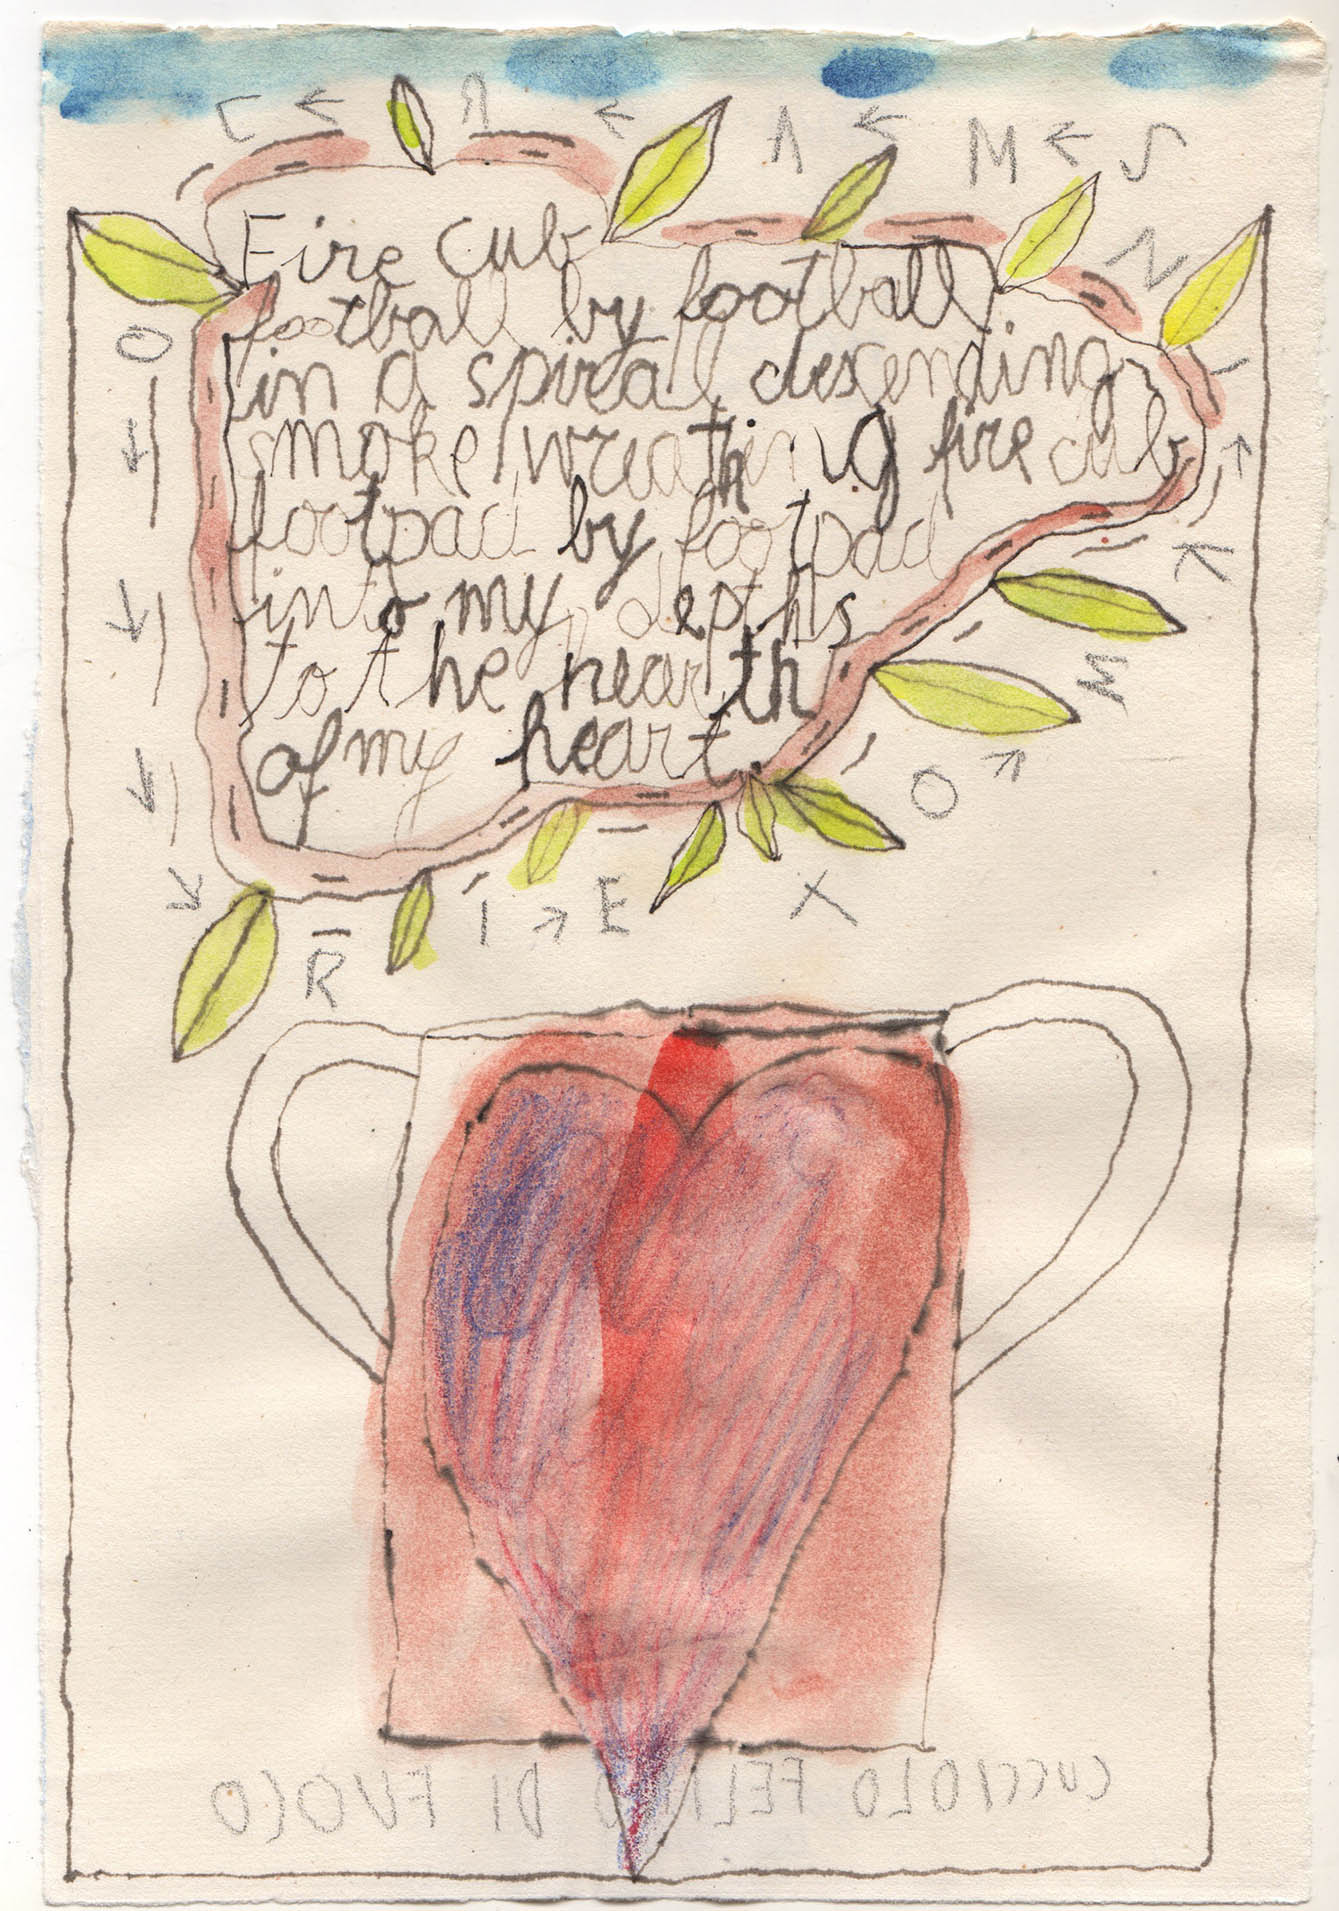 C ← R ← A ← M ← S
N
Fire cub
football by football
in a spiral descending
smoke wreathing fire cub
footpad by footpad
into my depths
to the hearth
of my heart
O
M
O
R I → E X
CUCCIOLO FELINO DI FUOCO